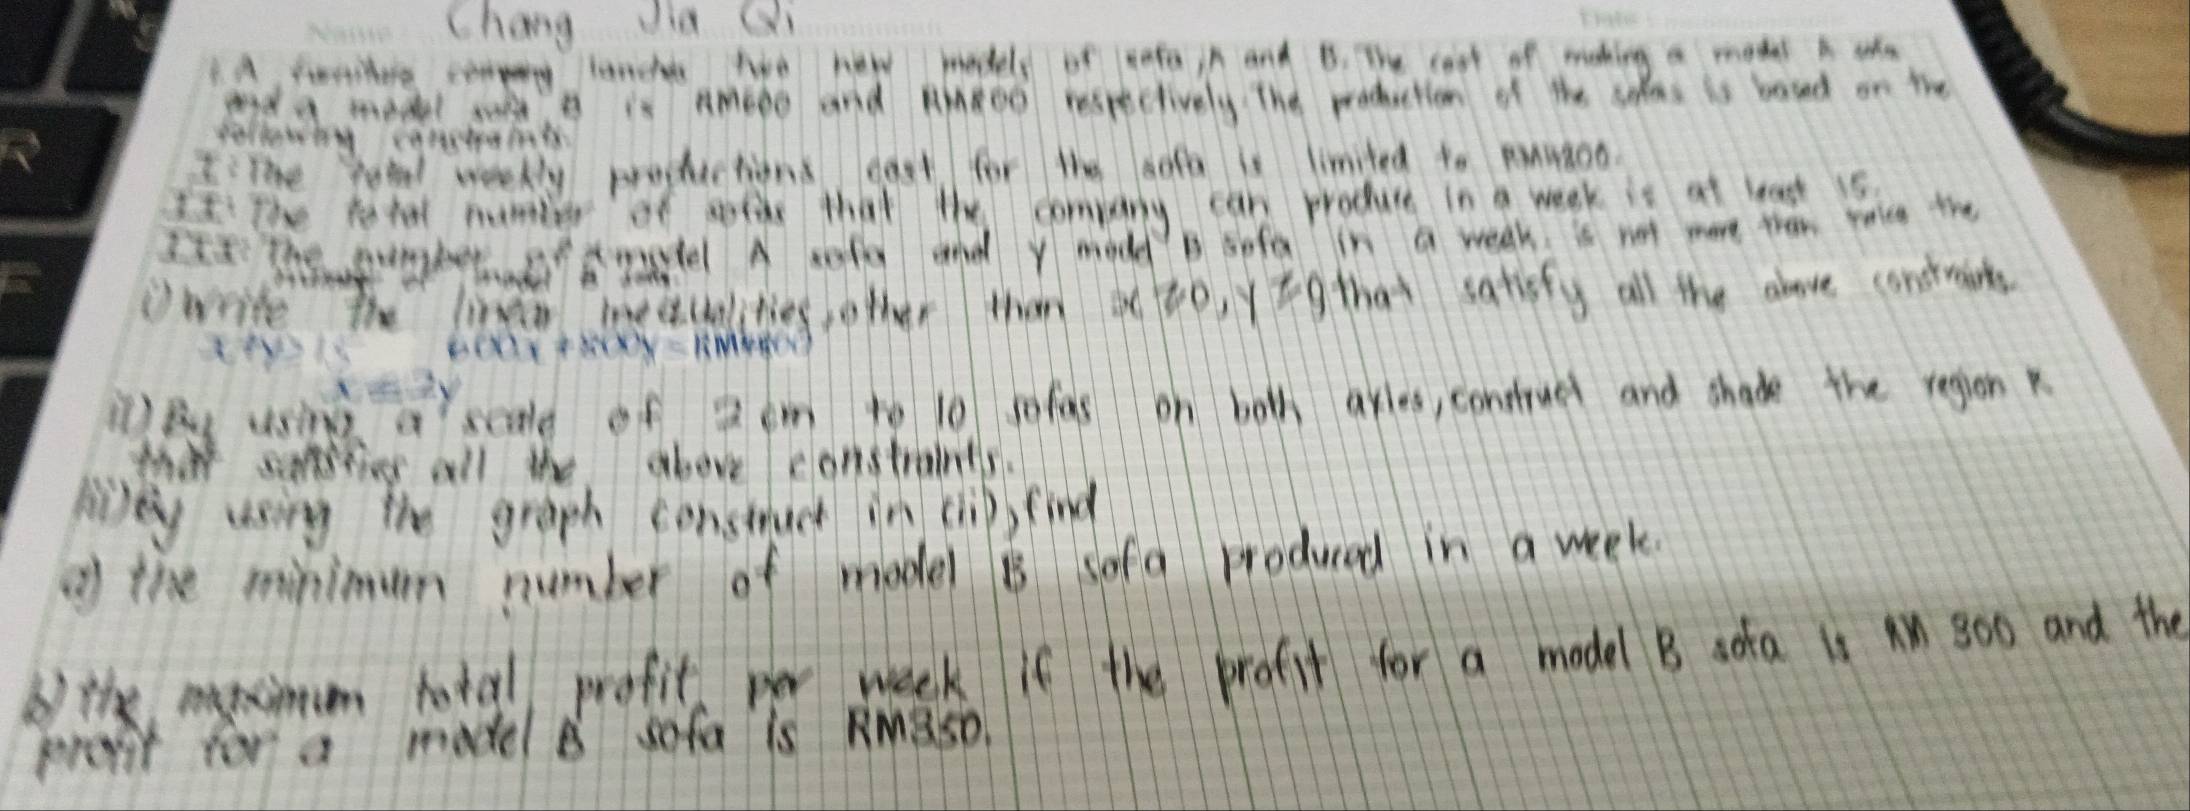 Name Chang Jia Qi Date
1. A furniture company lanches two new models of sofa, A and B. The cost of making a model A sofa
and a model sofa B is RM600 and RM800 respectively. The production of the sofas is based on the
following constraints.
I: The total weekly productions cost for the sofa is limited to RM4800.
II: The total number of sofas that the company can produce in a week is at least 15.
III: The number of x model A sofa and y model B sofa in a week. is not more than twice the
number of model B sofa.
i) Write the linear inequalities, other than x ≥ 0, y ≥ 0 that satisfy all the above constraints.
x+y≥15 600x + 800y = RM4800
x ≤ 2y
ii) By using a scale of 2 cm to 10 sofas on both axles, construct and shade the region R
that satisfies all the above constraints.
iii) By using the graph construct in (ii), find
a) the minimum number of model B sofa produced in a week.
b) the maximum total profit per week if the profit for a model B sofa is RM 300 and the
profit for a model B sofa is RM350.